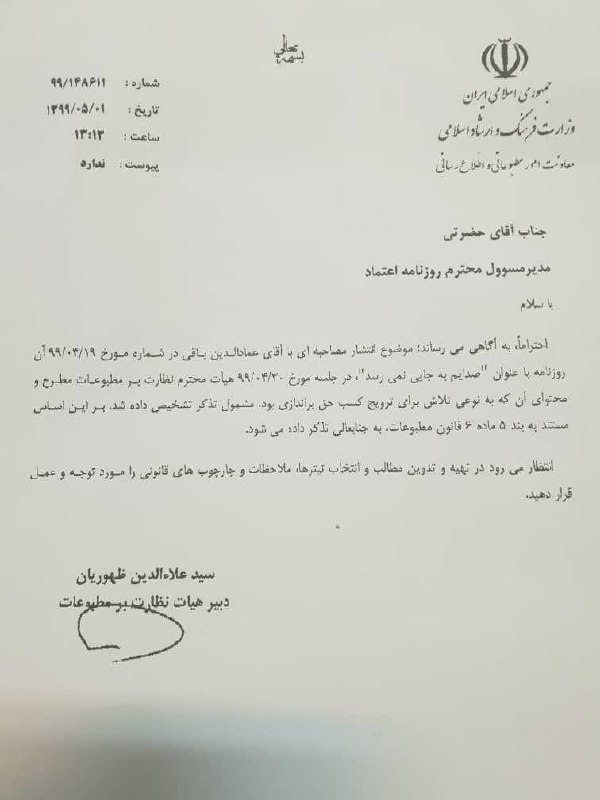 بسمه تعالی
جمهوری اسلامی ایران
وزارت فرهنگ و ارشاد اسلامی
معاونت امور مطبوعاتی و اطلاع رسانی
شماره : ۹۹/۱۴۸۶۱۱
تاریخ : ۱۳۹۹/۰۵/۰۱
ساعت : ۱۳:۱۳
پیوست : ندارد
جناب آقای حضرتی
مدیرمسوول محترم روزنامه اعتماد
با سلام
احتراماً، به آگاهی می رساند؛ موضوع انتشار مصاحبه ای با آقای عمادالدین باقی در شماره مورخ ۹۹/۰۴/۱۹ آن
روزنامه با عنوان "صدایم به جایی نمی رسد"، در جلسه مورخ ۹۹/۰۴/۳۰ هیأت محترم نظارت بر مطبوعات مطرح و
محتوای آن که به نوعی تلاش برای ترویج کسب حق براندازی بود. مشمول تذکر تشخیص داده شد. بر این اساس
مستند به بند ۵ ماده ۶ قانون مطبوعات، به جنابعالی تذکر داده می شود.
انتظار می رود در تهیه و تدوین مطالب و انتخاب تیترها، ملاحظات و چارچوب های قانونی را مورد توجه و عمل
قرار دهید.
سید علاءالدین ظهوریان
دبیر هیات نظارت بر مطبوعات